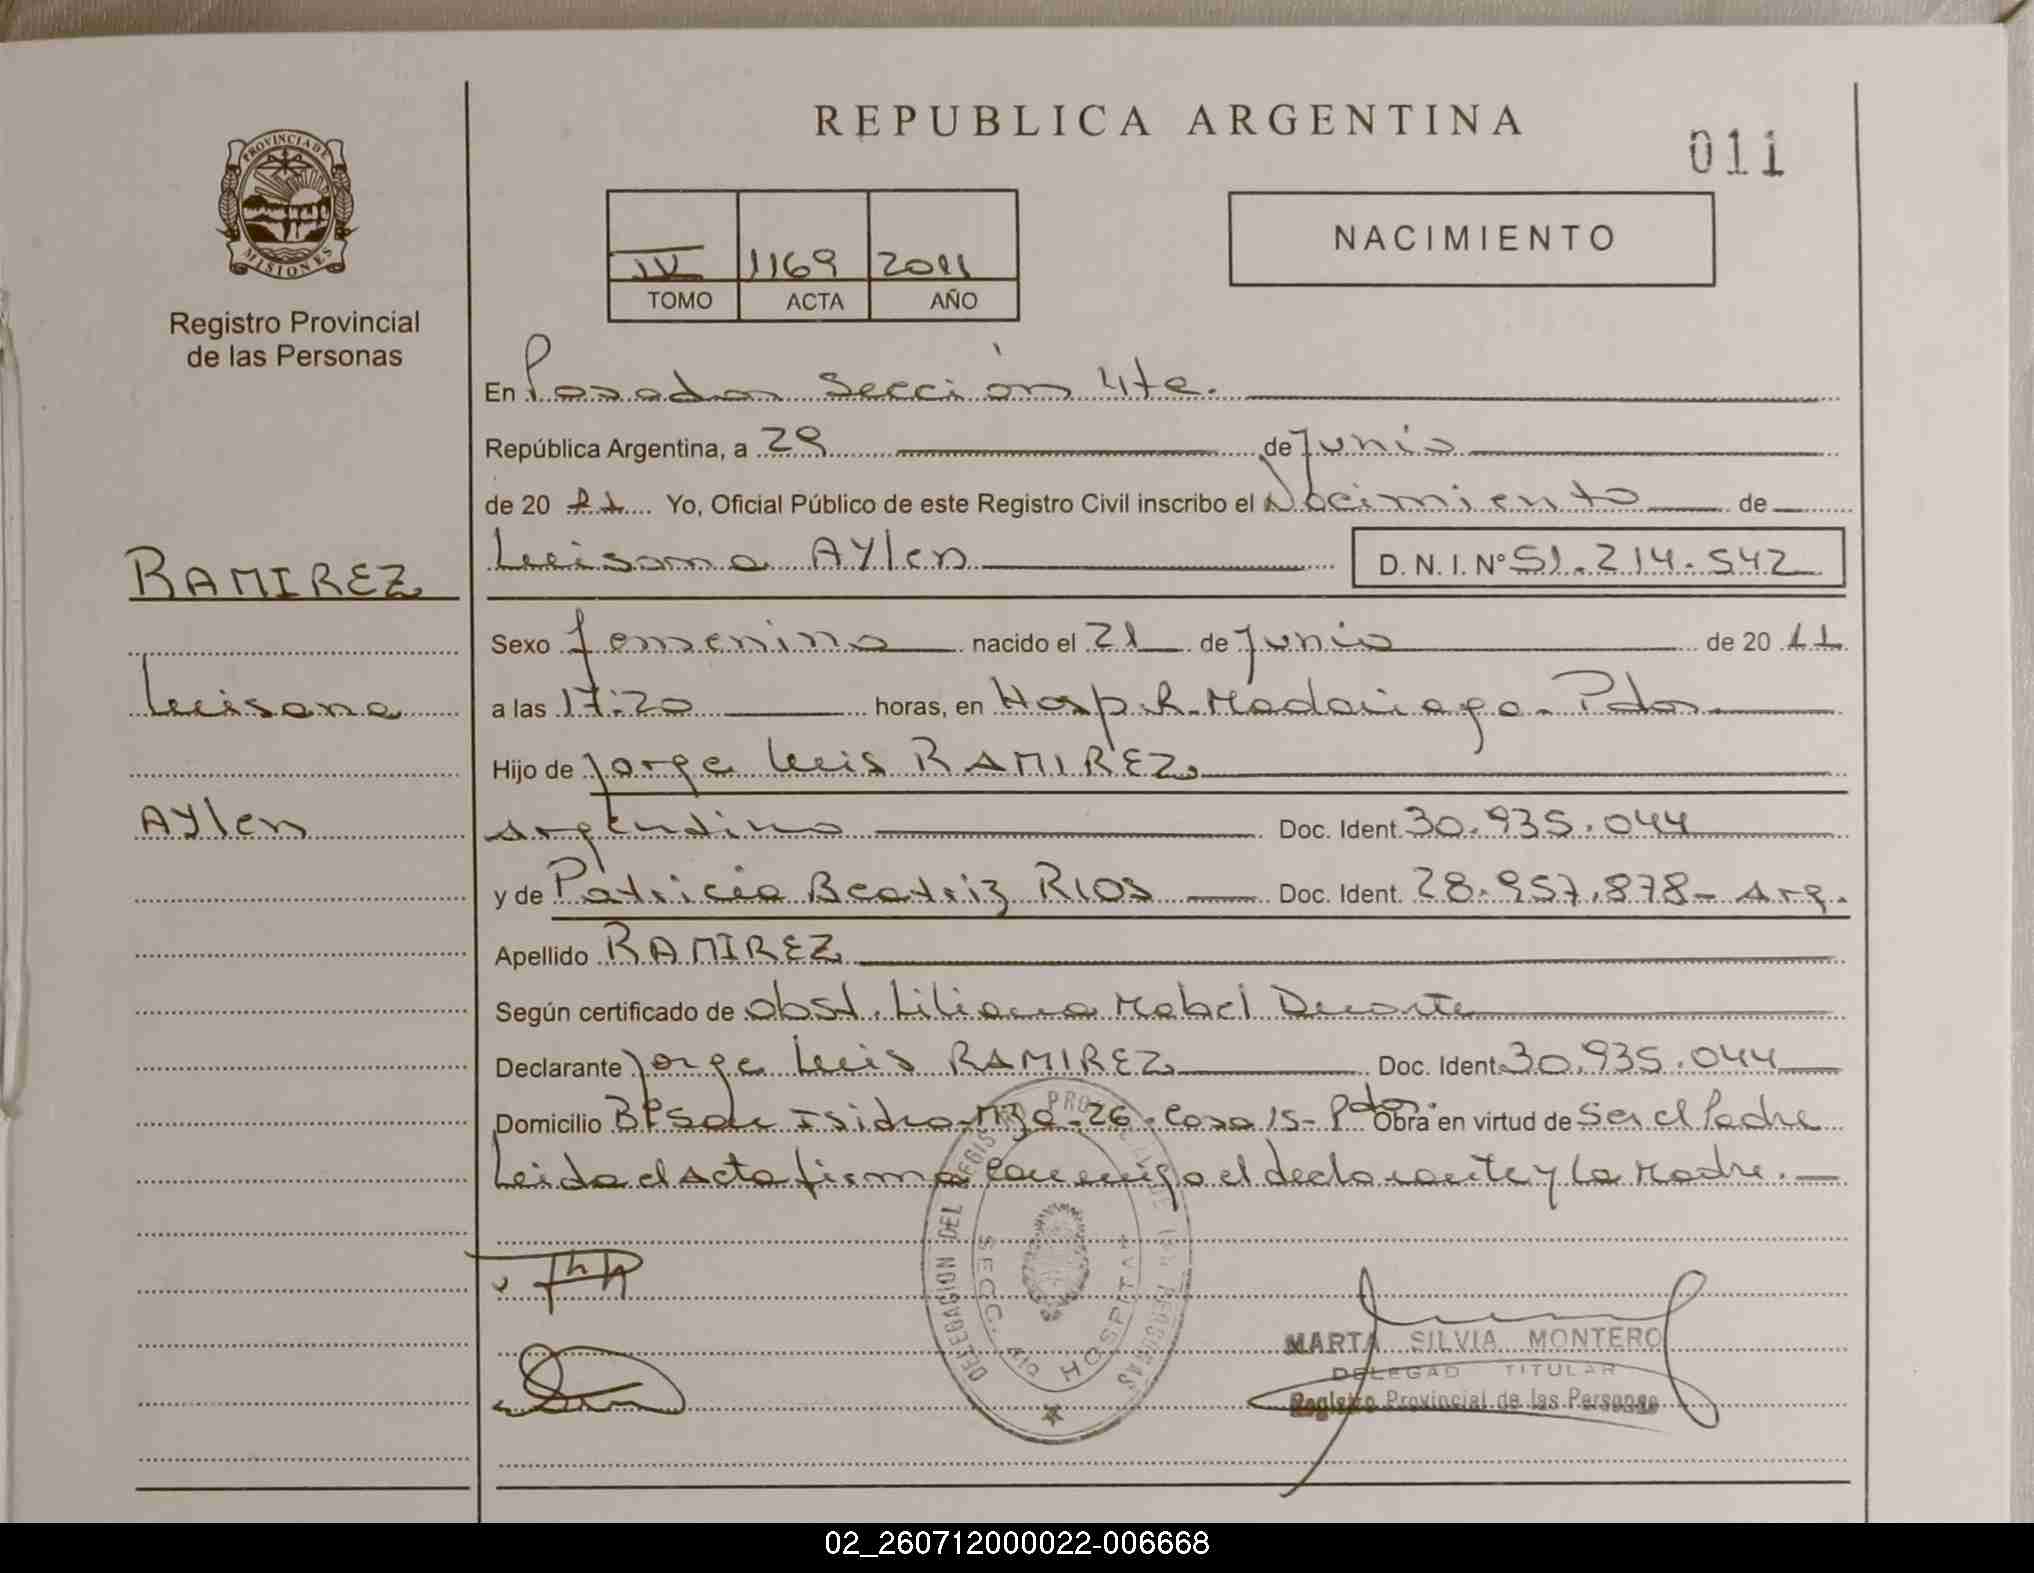 REPUBLICA ARGENTINA
011
PROVINCIA DE
MISIONES
Registro Provincial
de las Personas
IV 1169 2011
TOMO ACTA AÑO
NACIMIENTO
En Posadas Sección 4ta.
República Argentina, a 29 de Junio
de 20 11 Yo, Oficial Público de este Registro Civil inscribo el Nacimiento de
Luisana Aylen D.N.I. Nº 51.214.542
RAMIREZ
Luisana
Aylen
Sexo femenino nacido el 21 de Junio de 20 11
a las 17:20 horas, en Hosp. R. Madariaga - Pdas.
Hijo de Jorge Luis RAMIREZ
argentino Doc. Ident. 30.935.044
y de Patricia Beatriz RIOS Doc. Ident. 28.957.878 - Arg.
Apellido RAMIREZ
Según certificado de obst. Liliana Mabel Duarte
Declarante Jorge Luis RAMIREZ Doc. Ident. 30.935.044
Domicilio Bº San Isidro - Mza - 26 - Casa 15 - Pdas. Obra en virtud de Ser el Padre
Leida el Acta firma conmigo el declarante y la Madre.
DELEGACION DEL REGISTRO PROVINCIAL DE LAS PERSONAS
SECC. 4ta HOSPITAL
MARTA SILVIA MONTERO
DELEGAD TITULAR
Registro Provincial de las Personas
02_260712000022-006668